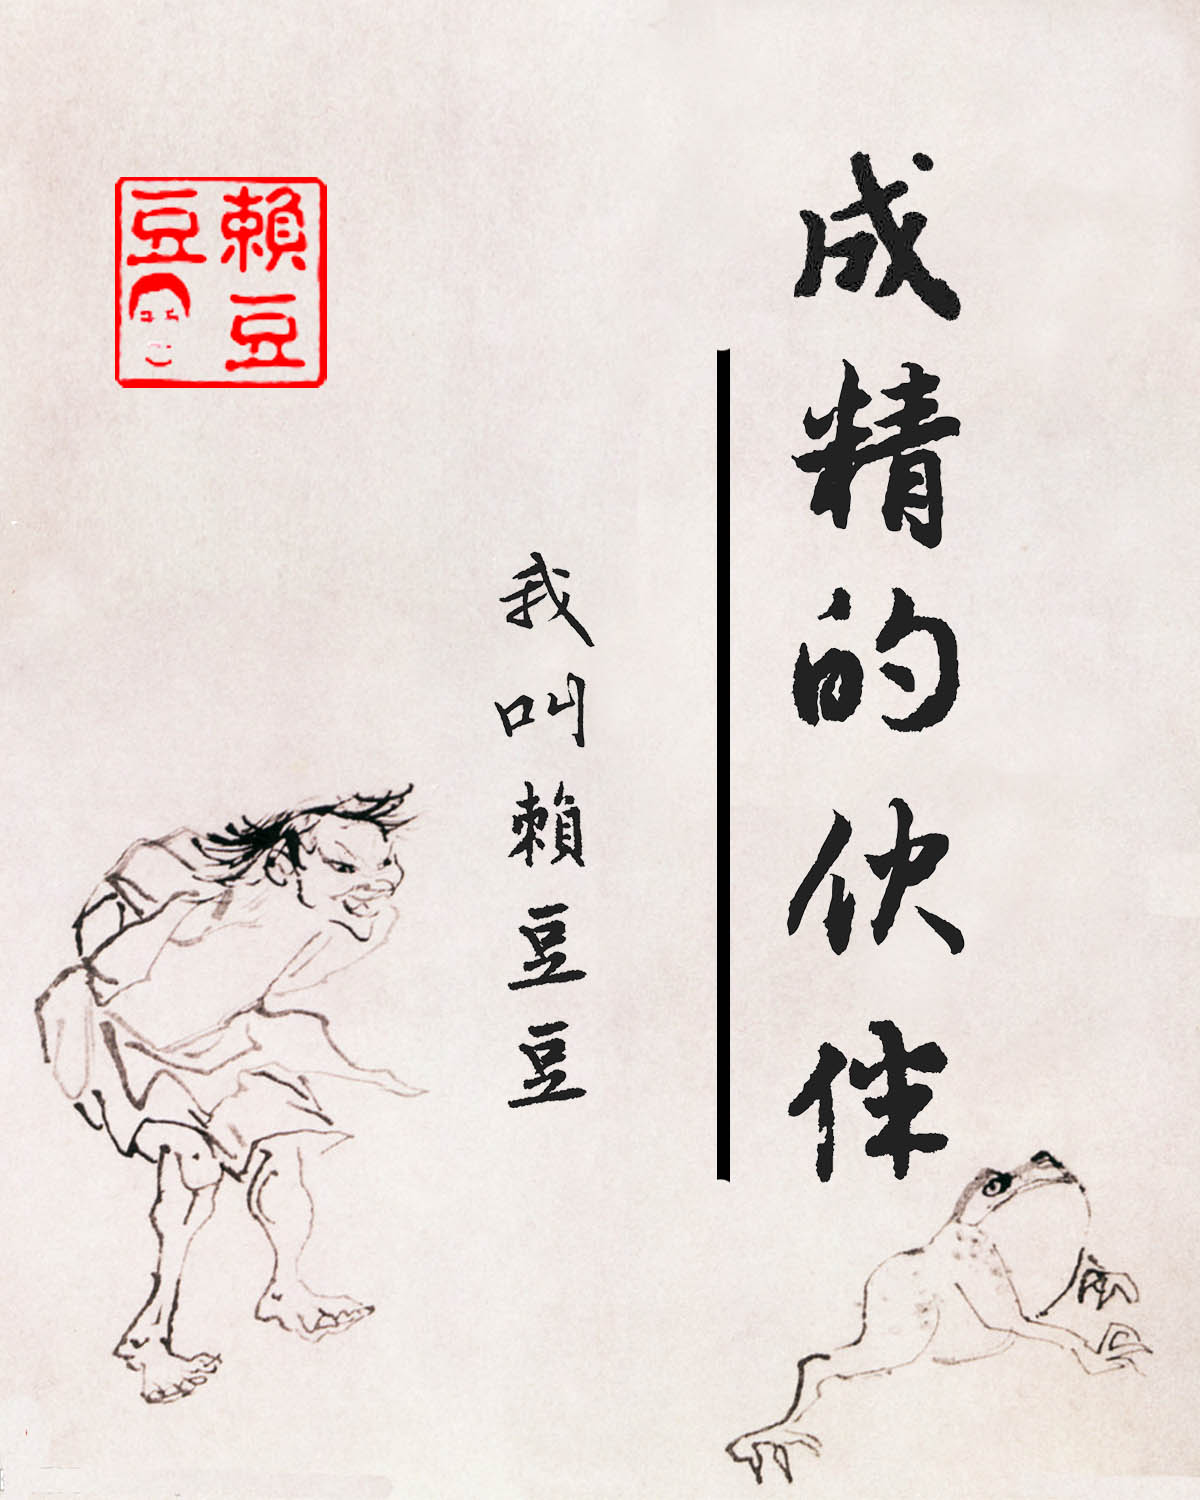 成精的伙伴
我叫賴豆豆
賴豆豆